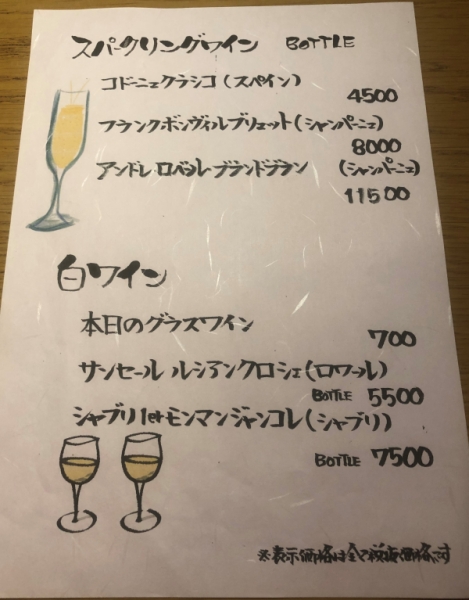 スパークリングワイン BOTTLE
コドーニュクラシコ(スペイン)
4500
フランクボンヴィルブリュット(シャンパーニュ)
8000
アンドレ・ロベール・ブランドブラン (シャンパーニュ)
11500
白ワイン
本日のグラスワイン
700
サンセール ルシアンクロシェ(ロワール)
BOTTLE 5500
シャブリ1erモンマンジャンコレ(シャブリ)
BOTTLE 7500
※表示価格は全て税抜価格です